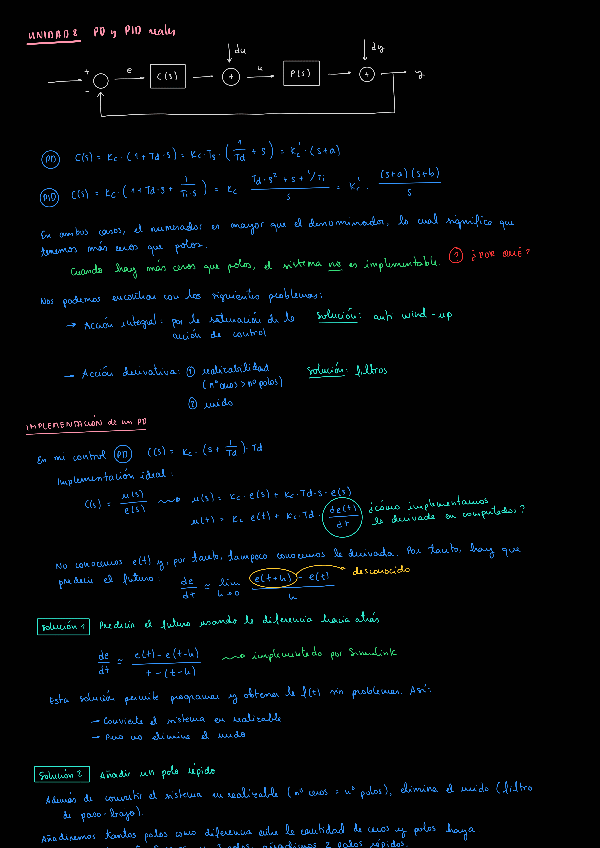 UNIDAD 8 PD y PID reales
du
dy
+
e
C(s)
+
u
P(s)
+
y
-
PD C(s) = Kc · (1 + Td · s) = Kc · Td · (1/Td + s) = Kc' · (s+a)
PID C(s) = Kc · (1 + Td · s + 1/(Ti · s)) = Kc · (Td · s² + s + 1/Ti)/s = Kc' · (s+a)(s+b)/s
En ambos casos, el numerador es mayor que el denominador, lo cual significa que
tenemos más ceros que polos.
Cuando hay más ceros que polos, el sistema no es implementable. ? ¿POR QUÉ?
Nos podemos encontrar con los siguientes problemas:
→ Acción integral: por la saturación de la Solución: anti wind-up
acción de control
→ Acción derivativa: ① realizabilidad Solución: filtros
(nº ceros > nº polos)
② ruido
IMPLEMENTACIÓN de un PD
En mi control PD C(s) = Kc · (s + 1/Td) · Td
Implementación ideal:
C(s) = u(s)/e(s) ⇝ u(s) = Kc · e(s) + Kc · Td · s · e(s)
u(t) = Kc e(t) + Kc · Td · de(t)/dt ¿cómo implementamos
la derivada en computador?
No conocemos e(t) y, por tanto, tampoco conocemos la derivada. Por tanto, hay que
predecir el futuro. de/dt ≈ lim h→0 (e(t+h) - e(t))/h → desconocido
Solución 1 Predecir el futuro usando la diferencia hacia atrás
de/dt ≈ (e(t) - e(t-h))/(t-(t-h)) ⇝ implementado por Simulink
Esta solución permite programar y obtener la f(t) sin problemas. Así:
→ Convierte el sistema en realizable
→ Pero no elimina el ruido
Solución 2 Añadir un polo rápido
Además de convertir el sistema en realizable (nº ceros = nº polos), elimina el ruido (filtro
de paso-bajo).
Añadiremos tantos polos como diferencia entre la cantidad de ceros y polos haya
polos, añadimos 2 polos rápidos.